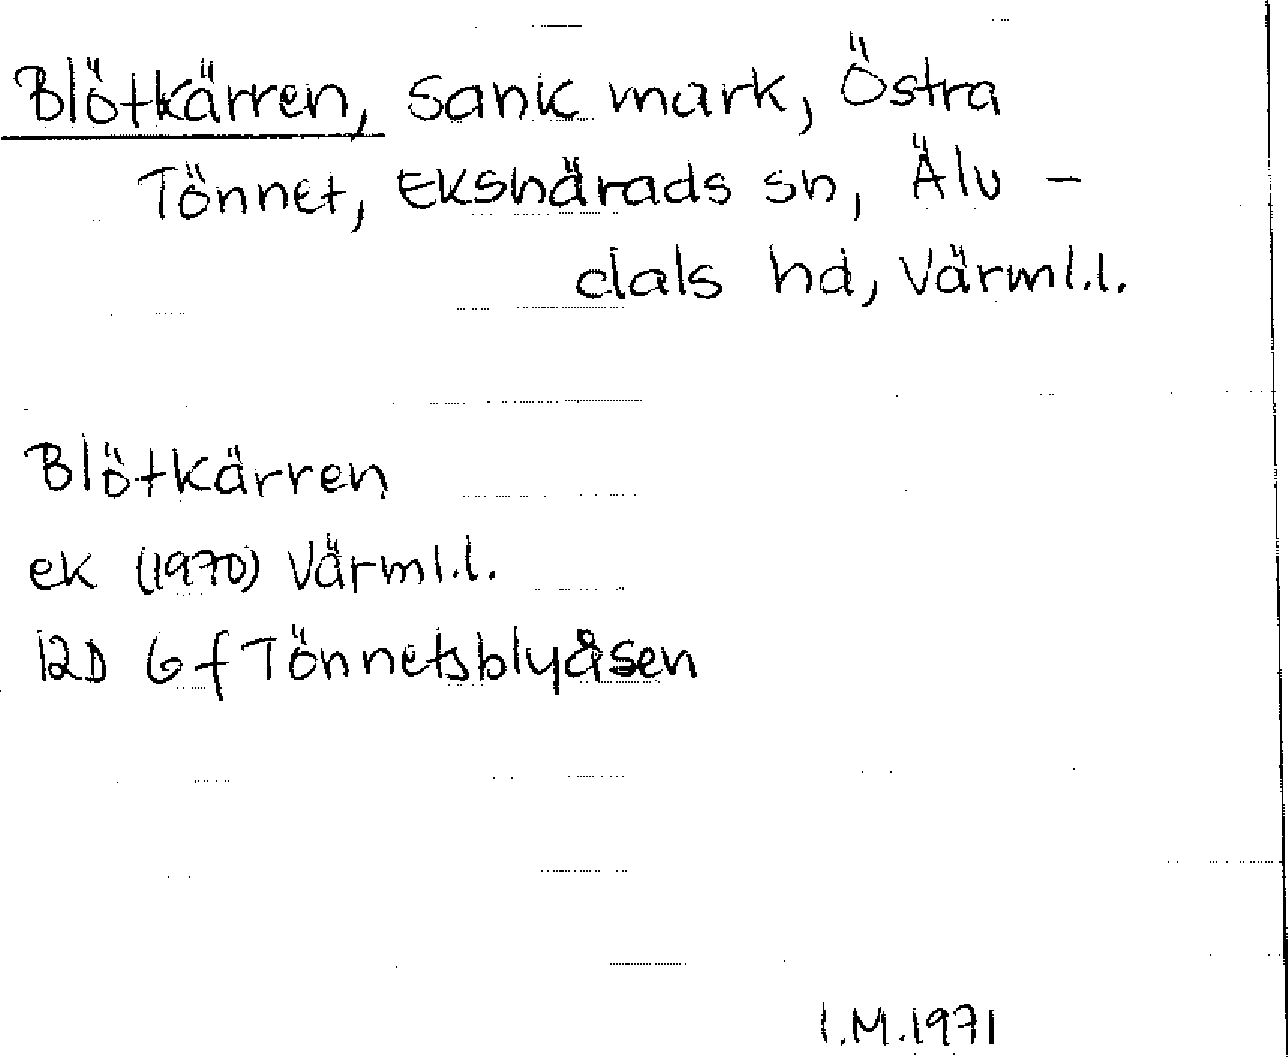 Blötkärren, sank mark, Östra
Tönnet, Ekshärads sn, Älv-
dals hd, Värml.l.
Blötkärren
ek (1970) Värml.l.
12D 6f Tönnetsblyåsen
I.M.1971